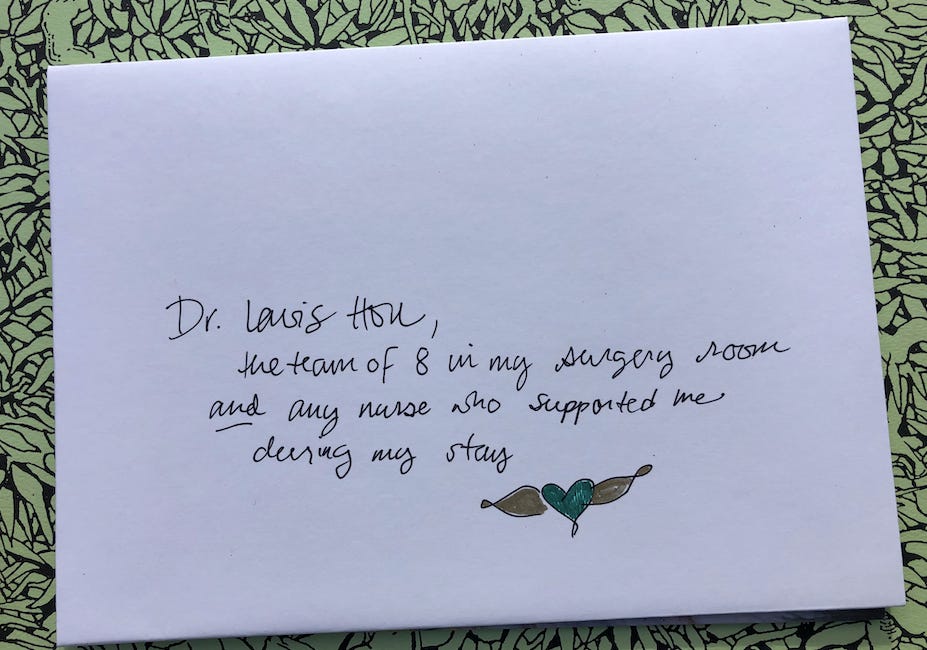 Dr. Louis Hou,
the team of 8 in my surgery room
and any nurse who supported me
during my stay